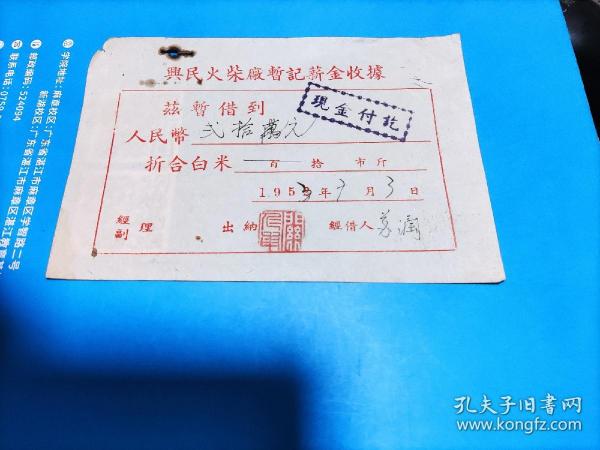 興民火柴廠暫記薪金收據
茲暫借到
現金付訖
人民幣 弍拾萬元
折合白米 百 拾 市斤
195 年 9 月 3 日
經副理 出納 經借人
学院地址：麻章校区：广东省湛江市麻章区学智路二号
新湖校区：广东省湛江市麻章区
邮政编码：524094
联系电话：0759
孔夫子旧书网
www.kongfz.com